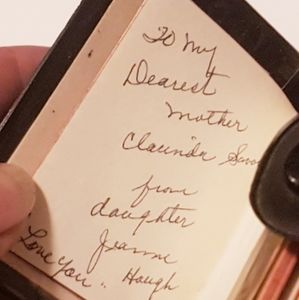 To My
Dearest
Mother
Claunda
from
daughter
Jeanne
"Love You" Haugh